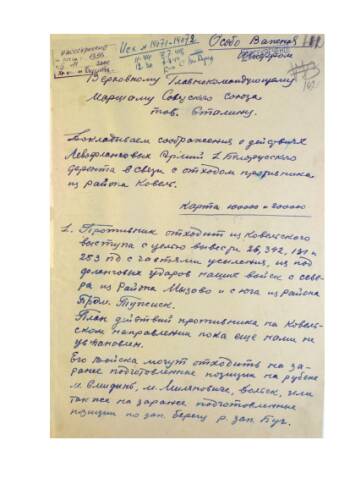 Исх № 14071-14072 Особо Важная
Шифром
Верховному Главнокомандующему
Маршалу Советского Союза
тов. Сталину.
Докладываем соображения о действиях
Левофланговых Армий 1 Белорусского
фронта в связи с отходом противника
из района Ковель.
Карта 100000 и 200000
1. Противник отходит из Ковельского
выступа с целью вывести 26, 342, 131 и
253 пд с частями усиления, из под
фланговых ударов наших войск с севе-
ра из района Мызово и с юга из района
Турийск.
План действий противника на Ковель-
ском направлении пока еще нами не
установлен.
Его войска могут отходить на за-
ранее подготовленные позиции на рубеже
м. Смидынь, или
так же на заранее подготовленные
позиции по зап. берегу р. зап. Буг.